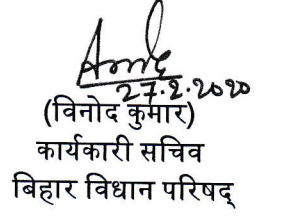 27.2.2020
(विनोद कुमार)
कार्यकारी सचिव
बिहार विधान परिषद्